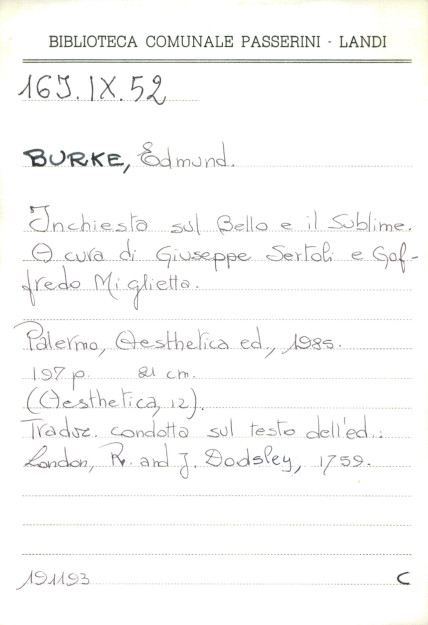 BIBLIOTECA COMUNALE PASSERINI - LANDI
16J.IX.52
BURKE, Edmund.
Inchiesta sul Bello e il Sublime.
A cura di Giuseppe Sertoli e Gof-
fredo Miglietta.
Palermo, Aesthetica ed., 1985.
197 p. 21 cm.
(Aesthetica, 12).
Traduz. condotta sul testo dell'ed.:
London, R. and J. Dodsley, 1759.
191193 C